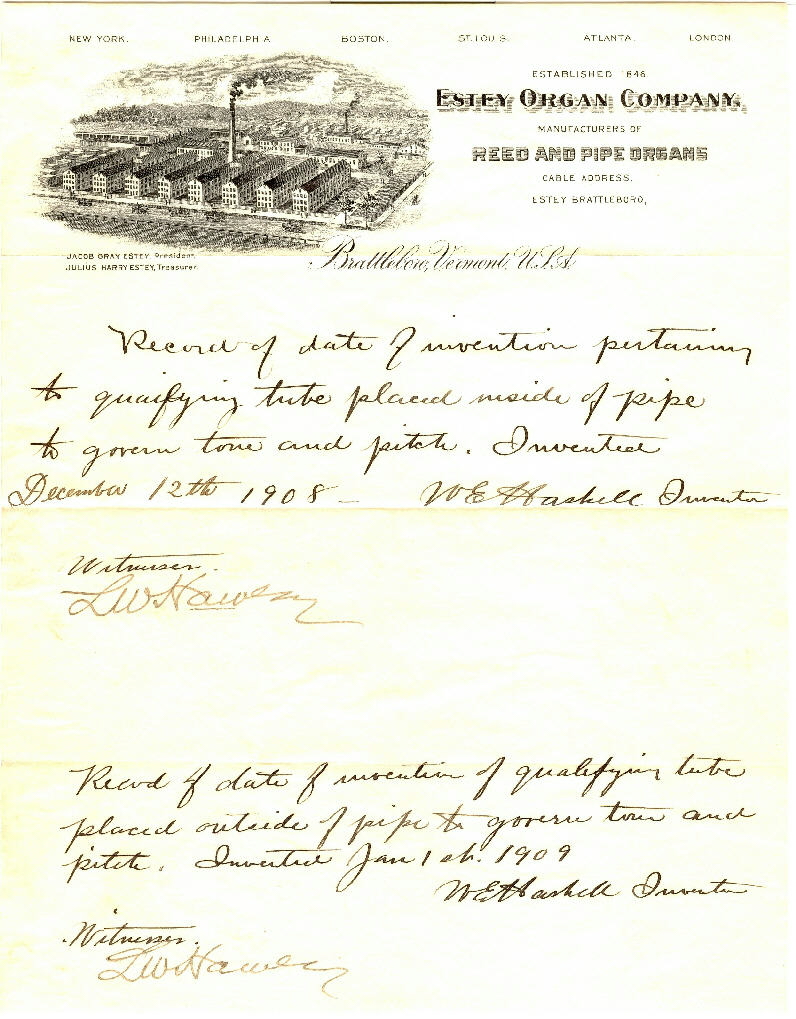 NEW YORK. PHILADELPHIA BOSTON. ST. LOUIS. ATLANTA. LONDON
ESTABLISHED 1846.
ESTEY ORGAN COMPANY,
MANUFACTURERS OF
REED AND PIPE ORGANS
CABLE ADDRESS.
ESTEY BRATTLEBORO,
JACOB GRAY ESTEY, President.
JULIUS HARRY ESTEY, Treasurer.
Brattleboro, Vermont, U.S.A.
Record of date of invention pertaining
to quaifying tube placed inside of pipe
to govern tone and pitch. Invented
December 12th 1908 - W E Haskell Inventor
Witnesses.
L W Hawley
Record of date of invention of qualifying tube
placed outside of pipe to govern tone and
pitch. Invented Jan 1st. 1909
W E Haskell Inventor
Witnesses.
L W Hawley